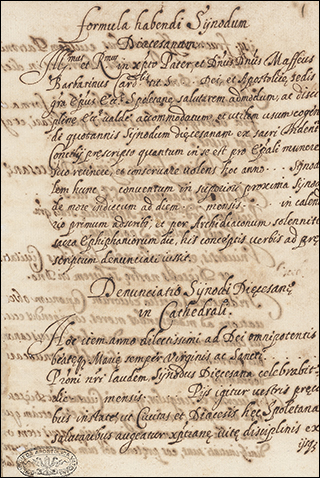 formula habendi Synodum
Diocesanam
Ill.mus et R.mus in xpto Pater et Dnus Dnus Maffeus
Barbarinus Card.lis tit. S. Dei, et Apostolice sedis
gra Epus &c. Spoletane salutarem admodum, ac disci
pline Eccl. valde accommodatam, et utilem usum cogen
de quotannis Synodum diecesanam ex sacri
Concilij prescripto quantum in se est pro munere
suo retinere, et conservare volens hoc anno Synod
lem hunc conventum in proxima Synodo
de more indicecum ad diem mensis in calen
rio primum adscribi, et per Archidiaconum solennita
sacra Epiphaniorum die, his conceptis verbis ad pre
scriptum denunciari iussit.
Denunciatio Synodi Diecesane
in Cathedrali.
Hoc item anno dilectissimi ad Dei omnipotentis
beateq; Marie semper Virginis, ac Sancti
P.roni nri laudem, Synodus Diecesana celebrabit
die mensis. Pijs igitur vestris preci
bus instate, ut Civitas, et Diocesis hec Spoletana
salutaribus augeatur xpiane vite disciplinis ex
ipsaq;